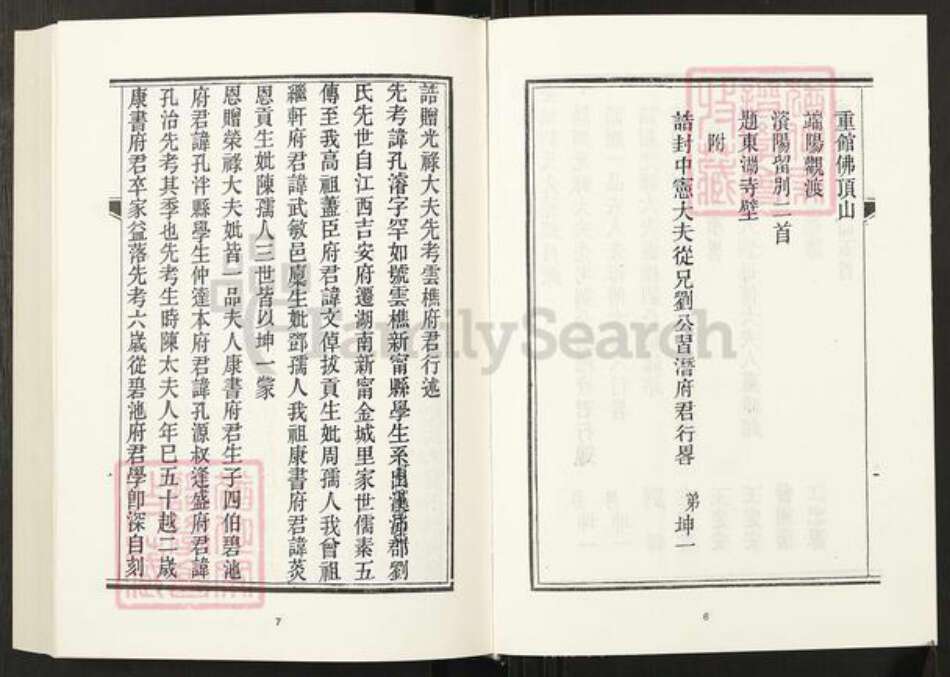 重館佛頂山
端陽觀渡
濱陽留別二首
題東湖寺壁
附
誥封中憲大夫從兄劉公習潛府君行畧
弟坤一
6
誥贈光祿大夫先考雲樵府君行述
先考諱孔濬字罕如號雲樵新甯縣學生系出漢沛郡劉
氏先世自江西吉安府遷湖南新甯金城里家世儒素五
傳至我高祖藎臣府君諱文倬拔貢生妣周孺人我曾祖
繼軒府君諱武敏邑廩生妣鄧孺人我祖康書府君諱荄
恩貢生妣陳孺人三世皆以坤一蒙
恩贈榮祿大夫妣皆一品夫人康書府君生子四伯碧池
府君諱孔泮縣學生仲達本府君諱孔源叔逢盛府君諱
孔治先考其季也先考生時陳太夫人年已五十越二歲
康書府君卒家益落先考六歲從碧池府君學卽深自刻
7
FamilySearch